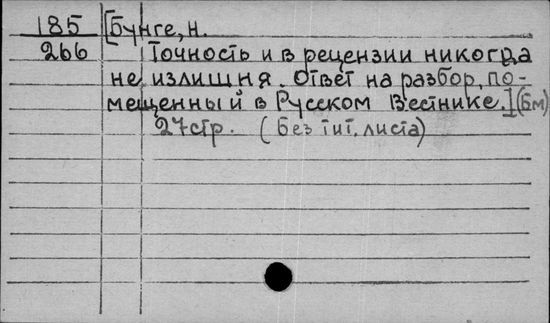 185 [Бунге, Н.
266 Точность и в рецензии никогда
не излишня. Ответ на разбор, по-
мещенный в Русском Вестнике.] (Бм)
27 стр. (Без тит. листа)